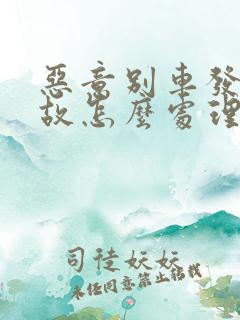 惡意別車發
故怎麼處理
司徒妘妘
未经同意禁止转载